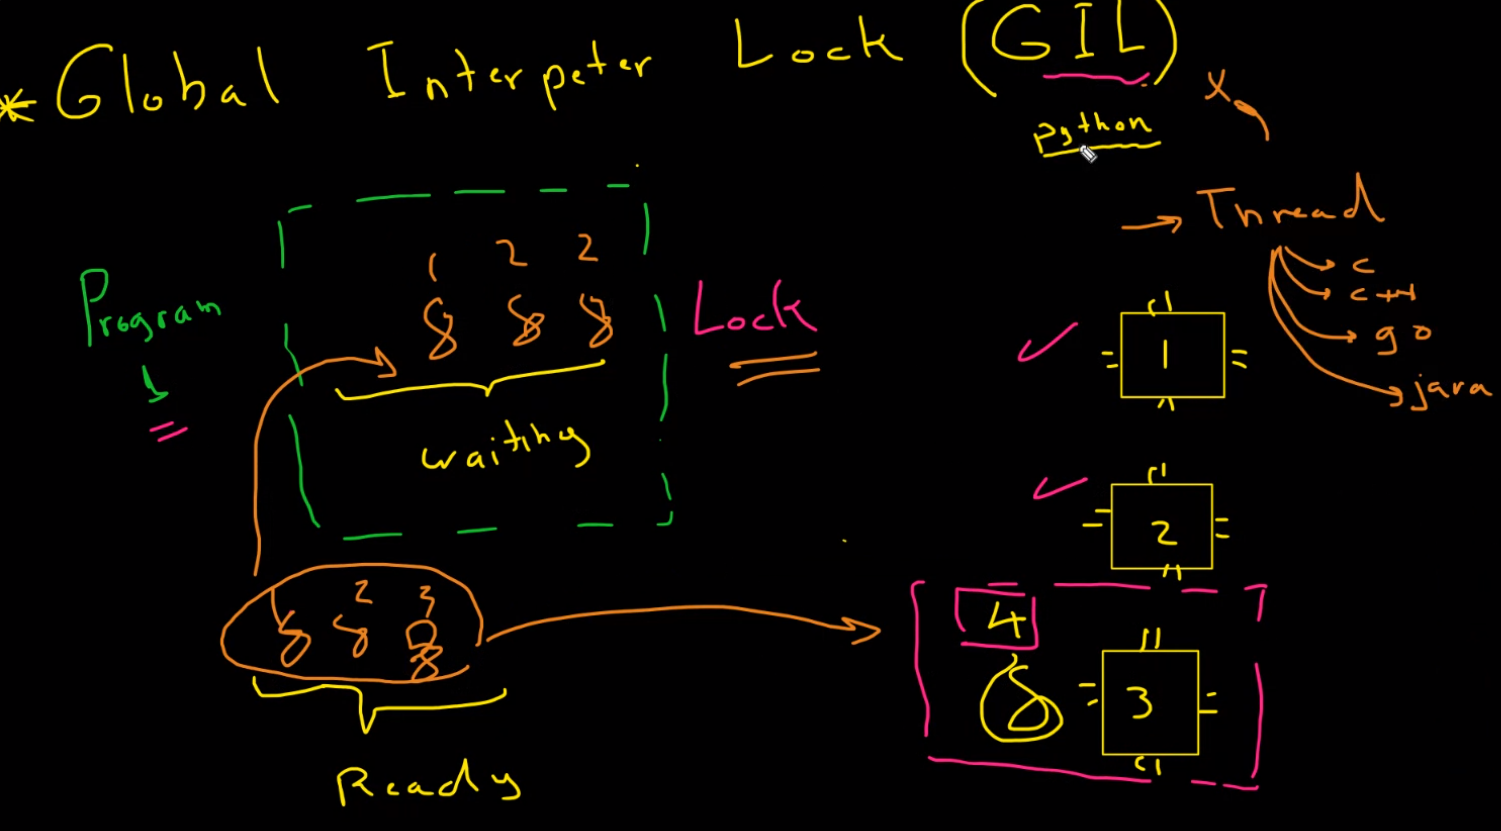 * Global Interpeter Lock (GIL)
python
x
Thread
c
c++
go
java
Program
1 2 2
8 8 8
Lock
waiting
1
2
2 3
8 8 8
4
8
3
Ready